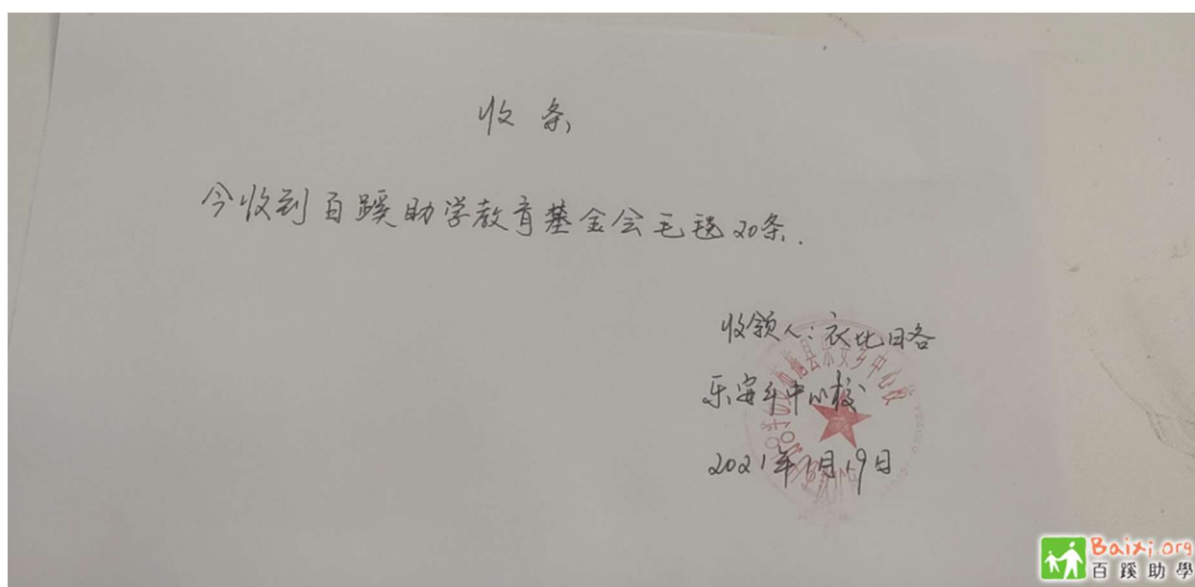 收条
今收到百蹊助学教育基金会毛毯20条.
收领人:衣比日各
乐安乡中心校
2021年1月19日
Baixi.org
百蹊助學